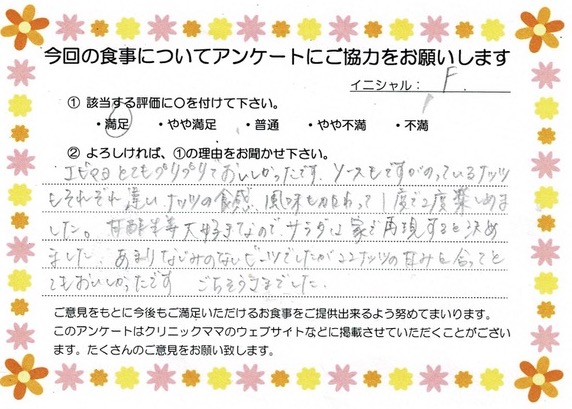 今回の食事についてアンケートにご協力をお願いします
イニシャル： F.
① 該当する評価に〇を付けて下さい。
・満足 ・やや満足 ・普通 ・やや不満 ・不満
② よろしければ、①の理由をお聞かせ下さい。
エビマヨとてもプリプリでおいしかったです。ソースもですがのっているナッツ
もそれぞれ違い、ナッツの食感、風味も加わって1度で2度楽しめま
した。甘酢生姜大好きなので、サラダは家で再現すると決め
ました。あまりなじみのないビーツでしたがココナッツの甘みと合ってと
てもおいしかったです ごちそうさまでした。
ご意見をもとに今後もご満足いただけるお食事をご提供出来るよう努めてまいります。
このアンケートはクリニックママのウェブサイトなどに掲載させていただくことがござい
ます。たくさんのご意見をお願い致します。